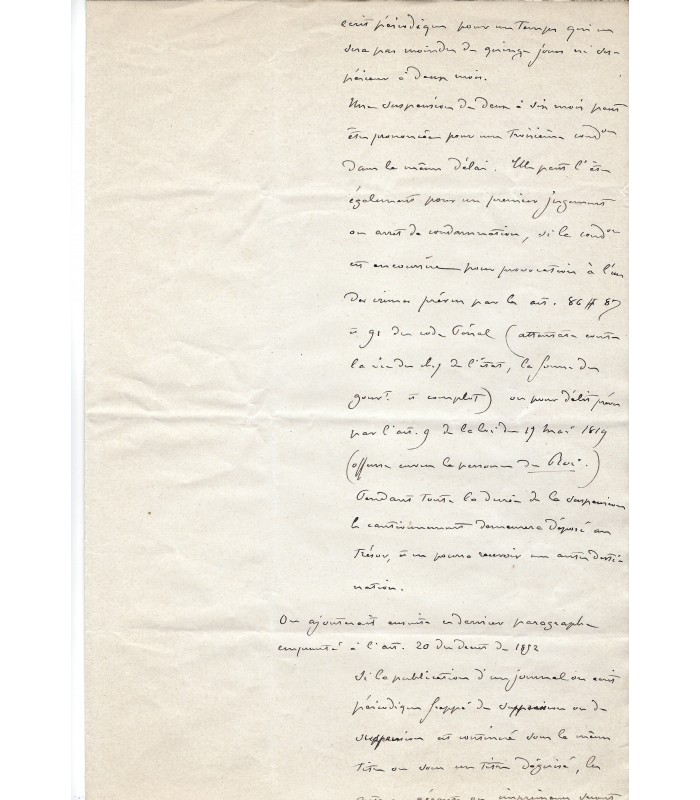 écrit périodique pour un temps qui ne
sera pas moindre de quinze jours ni su-
périeur à deux mois.
Une suspension de deux à six mois peut
être prononcée pour une troisième condon
dans le même délai. Elle peut l'être
également pour un premier jugement
ou arrêt de condamnation, si la condon
est encourue pour provocation à l'un
des crimes prévus par les art. 86 87
et 91 du code Pénal (attentats contre
la vie du chef de l'état, la forme du
gouvt. et complot) ou pour délit prévu
par l'art. 9 de la loi du 17 mai 1819
(offense envers la personne du Roi.)
Pendant toute la durée de la suspension
le cautionnement demeurera déposé au
Trésor, et ne pourra recevoir une autre desti-
nation.
On ajouterait ensuite ce dernier paragraphe
emprunté à l'art. 20 du décret de 1852
Si la publication d'un journal ou écrit
périodique frappé de suppression ou de
suspension est continuée sous le même
titre ou sous un titre déguisé, les
gérants ou imprimeurs seront